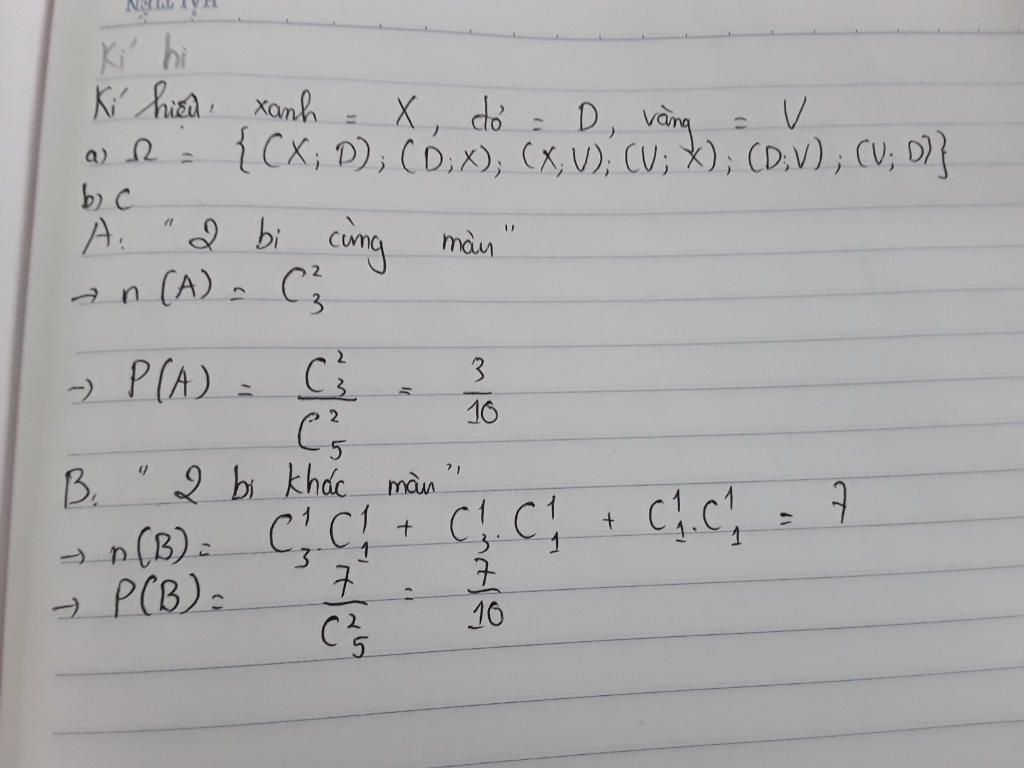 Kí hi
Kí hiệu: xanh = X, đỏ = D, vàng = V
a) Ω = {(X; D); (D; X); (X; V); (V; X); (D; V); (V; D)}
b) C
A: "2 bi cùng màu"
→ n(A) = C₃²
→ P(A) = C₃² / C₅² = 3/10
B: "2 bi khác màu"
→ n(B) = C₃¹.C₁¹ + C₃¹.C₁¹ + C₁¹.C₁¹ = 7
→ P(B) = 7 / C₅² = 7/10